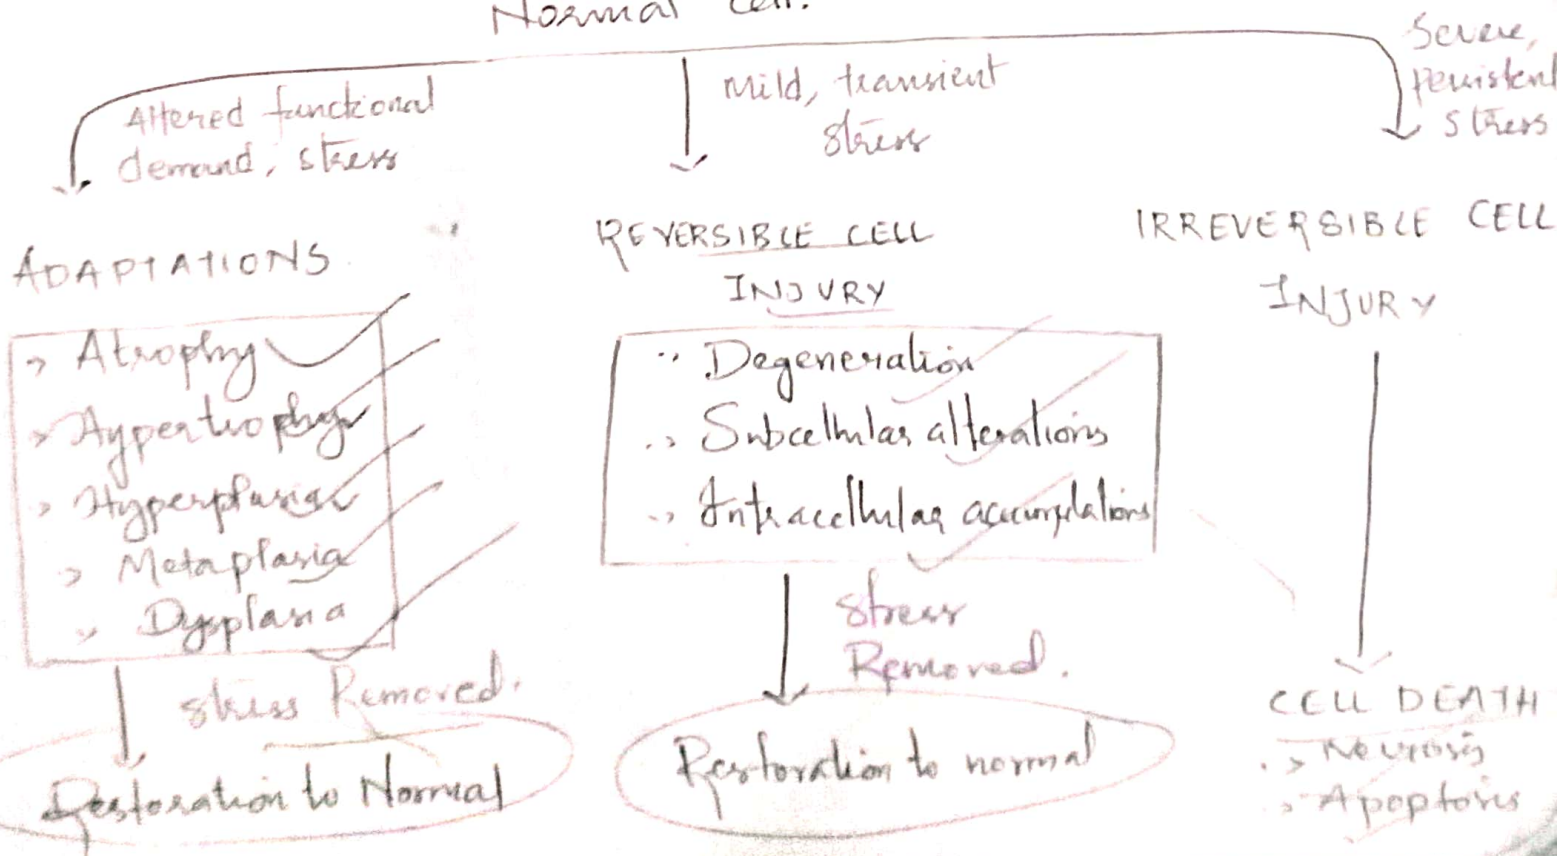 Normal Cell.
Altered functional
demand, stress
Mild, transient
stress
Severe,
persistent
stress
ADAPTATIONS
> Atrophy
> Hypertrophy
> Hyperplasia
> Metaplasia
> Dysplasia
stress Removed.
Restoration to Normal
REVERSIBLE CELL
INJURY
> Degeneration
> Subcellular alterations
> Intracellular accumulations
stress
Removed.
Restoration to normal
IRREVERSIBLE CELL
INJURY
CELL DEATH
> Necrosis
> Apoptosis